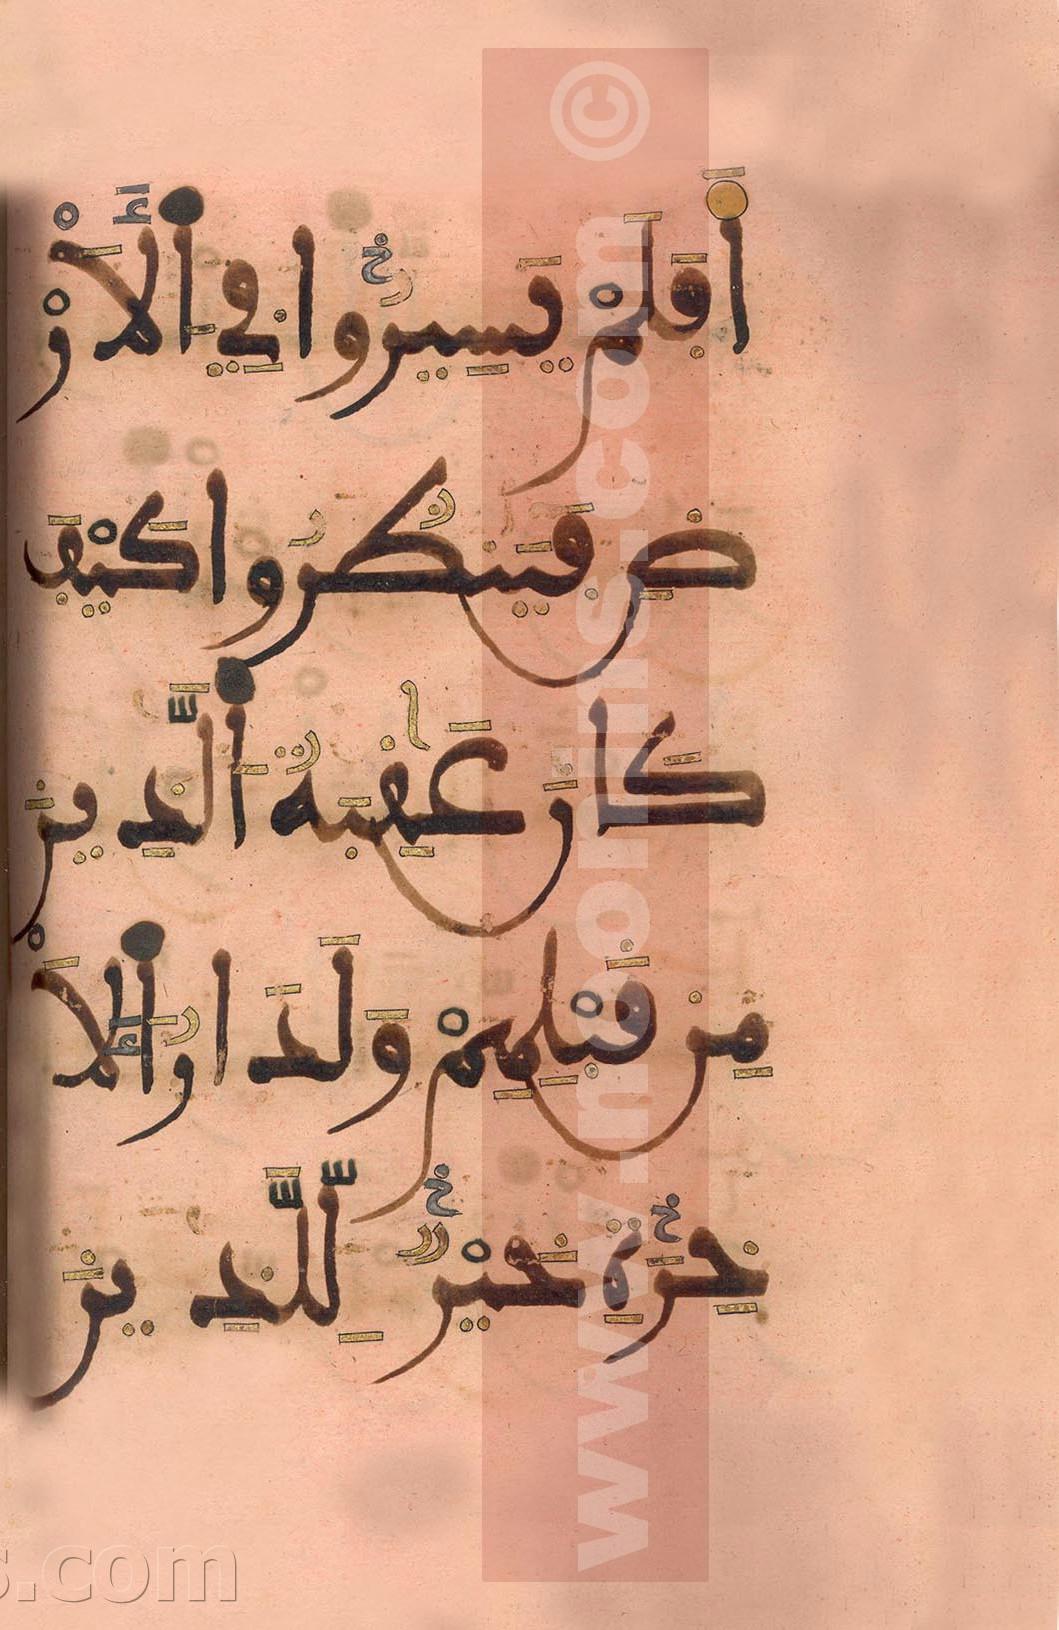 أَفَلَمْ يَسِيرُوا فِي اَلَارْ
ضِ فَيَنظُرُوا كَيْفَ
كَانَ عَٰقِبَةُ اَلَّذِينَ
مِن قَبْلِهِمْ وَلَدَارُ اَلَا
خِرَةِ خَيْرٌ لِّلَّذِينَ
www.monjns.com ©
s.com